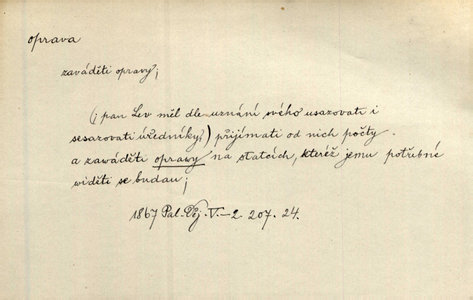 oprava
zaváděti opravy;
(; pan Lev měl dle uznání svého usazovati i
sesazovati úředníky;) přijímati od nich počty
a zawáděti oprawy na statcích, kteréž jemu potřebné
widěti se budau;
1867 Pal. Děj. V-2. 207. 24.